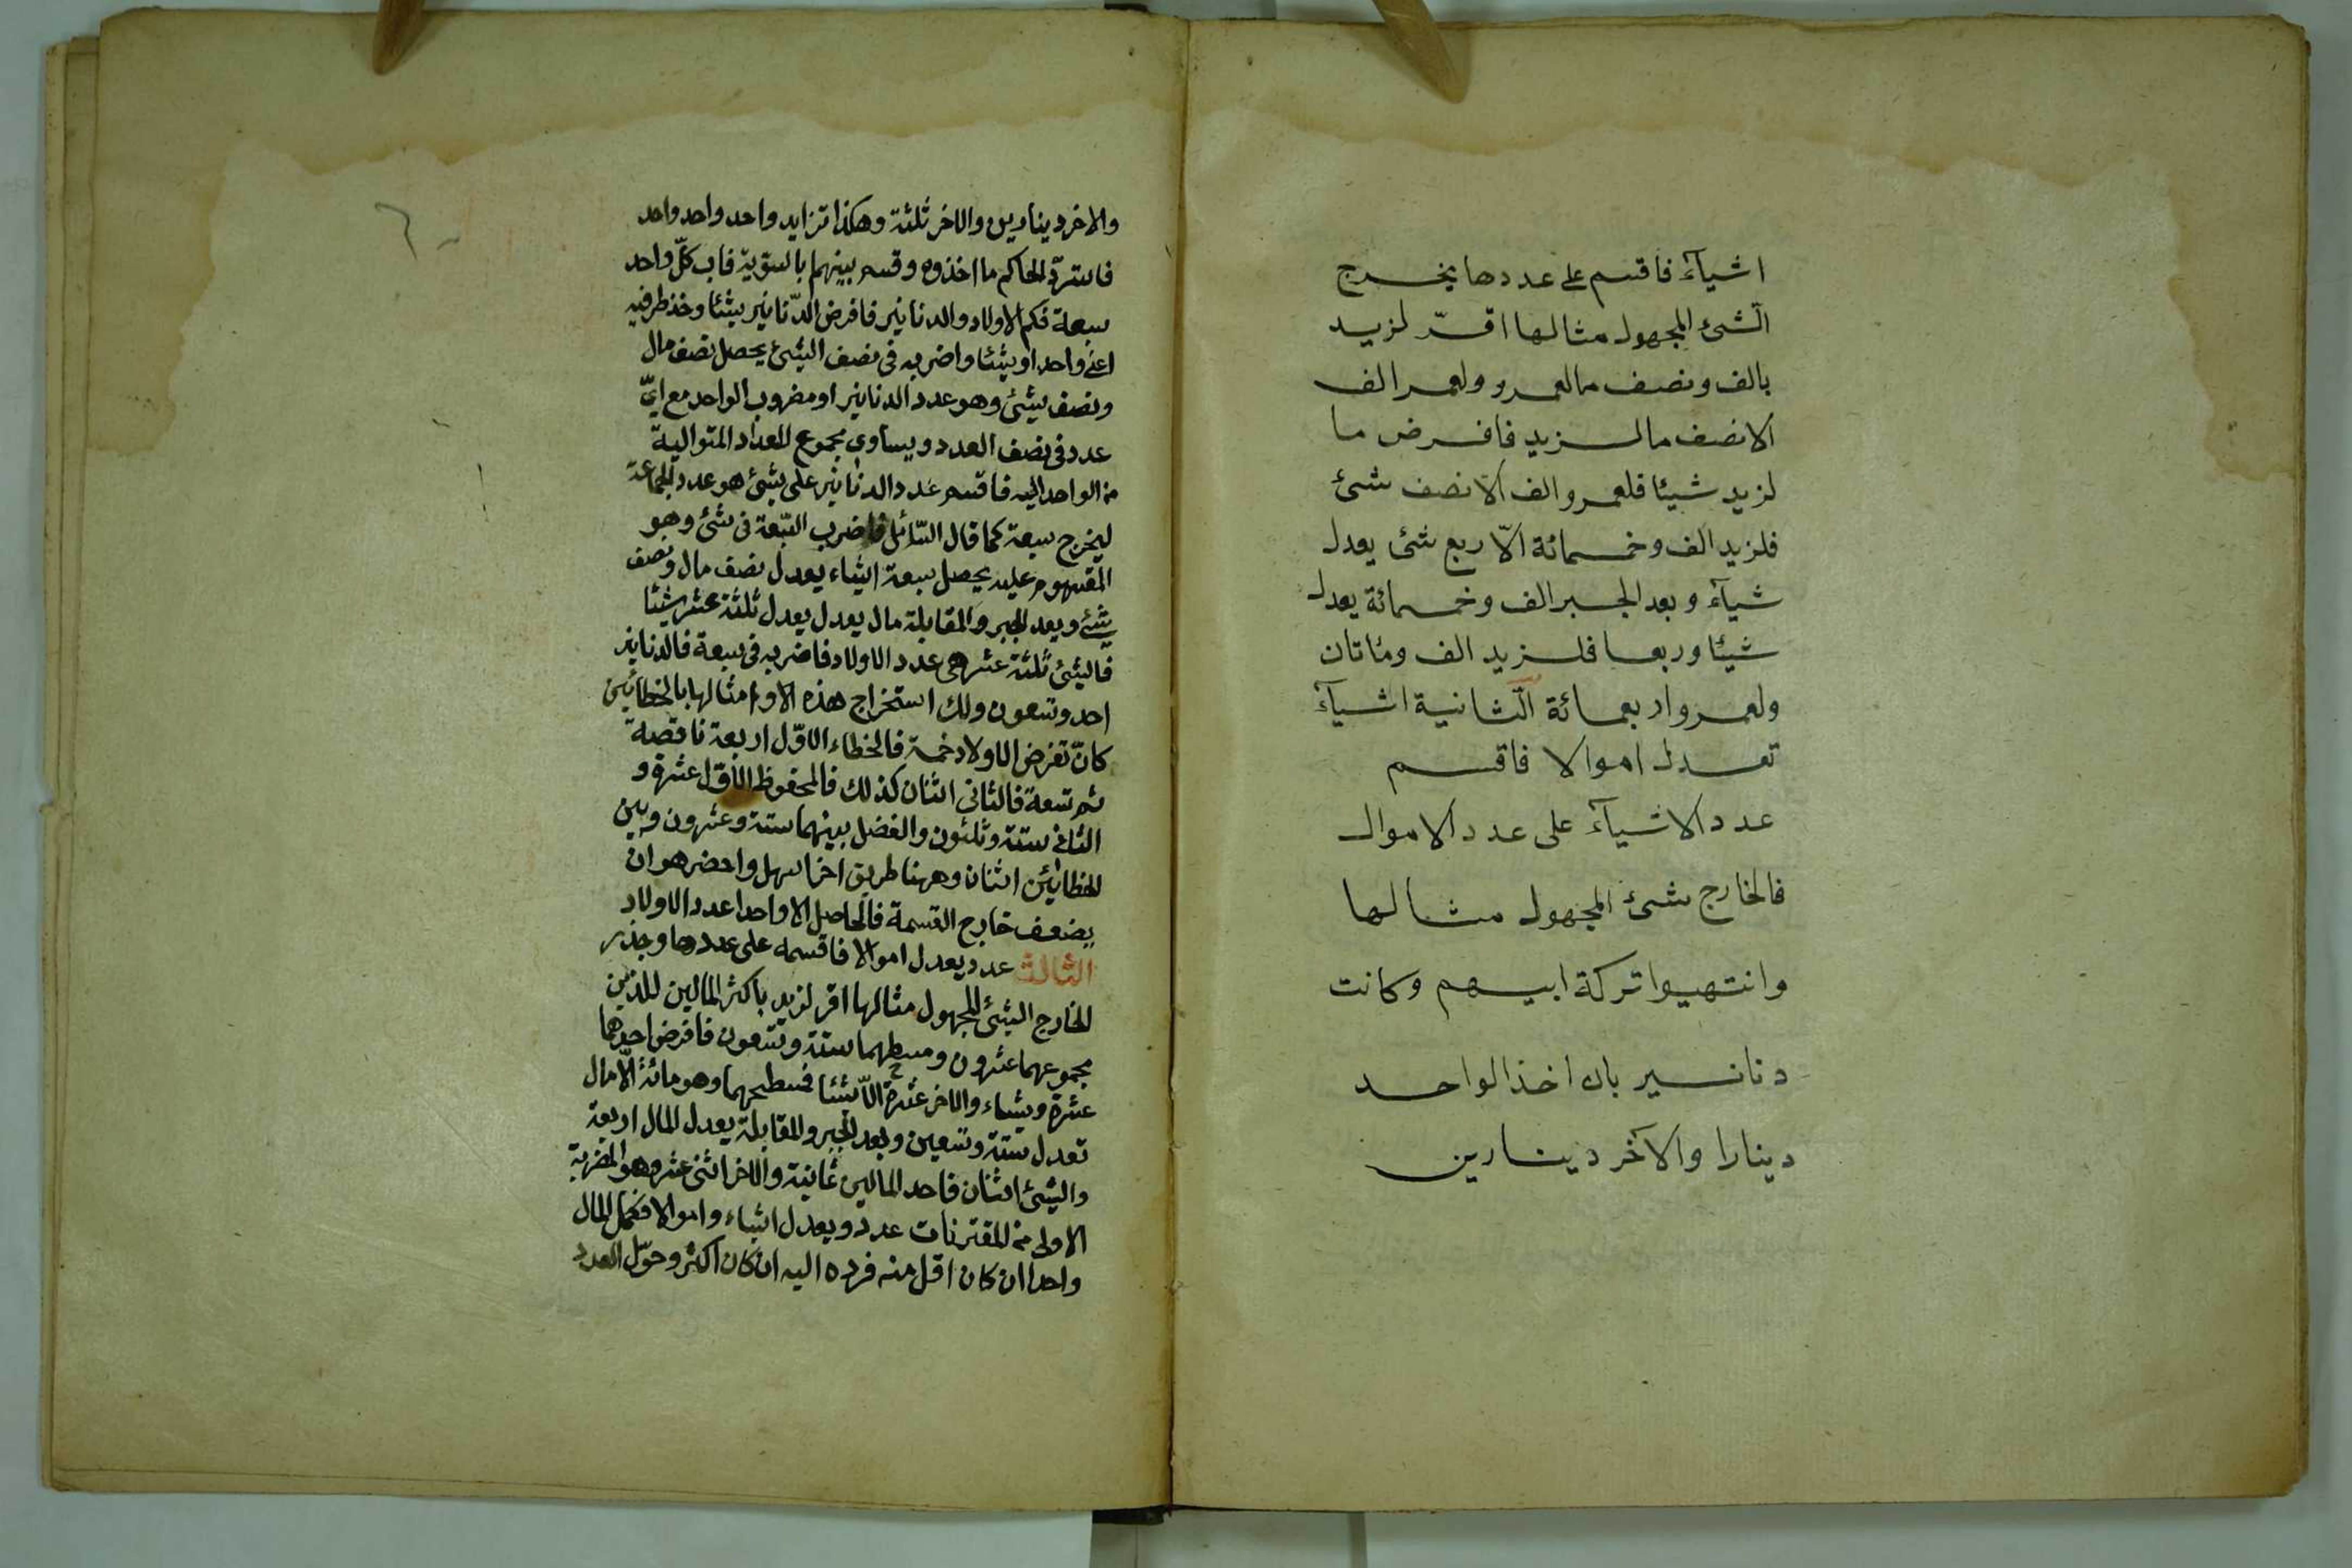 اشيآء فاقسم على عددها يخرج
الشئ المجهول مثالها اقرّ لزيد
بالف ونصف ما لعمرو ولعمر الف
الا نصف ما لزيد فافرض ما
لزيد شيئا فلعمرو الف الا نصف شئ
فلزيد الف وخمسمائة الّا ربع شئ يعدل
شيآء وبعد الجبر الف وخمسمائة يعدل
شيئا وربعا فلزيد الف ومئاتان
ولعمرو اربعمائة الثانية اشيآء
تعدل اموالا فاقسم
عدد الاشيآء على عدد الاموال
فالخارج شئ المجهول مثالها
وانتهبوا تركة ابيهم وكانت
دنانير بان اخذ الواحد
دينارا والآخر دينارين
والاخر دينارين والاخر ثلثة وهكذا تزايد واحد واحد واحد
فاسترد الحاكم ما اخذوه وقسم بينهم بالسوية فاب كلّ واحد
سبعة فكم الاولاد والدنانير فافرض الدّنانير شيئا وخذ طرفيه
اعنى واحد او شيئا واضربه فى نصف الشئ يحصل نصف مال
ونصف شئ وهو عدد الدنانير او مضروب الواحد مع ايّ
عدد فى نصف العدد ويساوى مجموع للعداد المتوالية
من الواحد اليه فاقسم عدد الدنانير على شئ هو عدد الجماعة
ليخرج سبعة كما قال السّائل فاضرب السّبعة فى شئ وهو
المقسوم عليه يحصل سبعة اشياء يعدل نصف مال ونصف
شئ وبعد الجبر والمقابلة مال يعدل يعدل ثلثة عشر شيئا
فالشئ ثلثة عشر هى عدد الاولاد فاضربه فى سبعة فالدنانير
احد وتسعون ولك استخراج هذه الاو امثالها بالخطائين
كانّ تفرض الاولاد خمسة فالخطاء الاوّل اربعة ناقصة
ثم تسعة فالثانى اثنان كذلك فالمحفوظ الاوّل عشرة و
الثانى ستة وثلثون والفضل بينهما ستة وعشرون وبين
الخطائين اثنان وههنا طريق اخر اسهل واحضر هو ان
يضعف خارج القسمة فالحاصل الا واحدا عدد الاولاد
الثالث عدد يعدل اموالا فاقسمه على عددها وجذر
الخارج الشئ المجهول مثالها اقر لزيد باكثر المالين للذين
مجموعهما عشرون ومسطحهما ستة وتسعون فافرض احدهما
عشرة وشياء والاخر عشرة الّا شيئا فمسطحهما وهو مائة الّا مال
تعدل ستة وتسعين وبعد الجبر والمقابلة يعدل المال اربعة
والشئ اثنان فاحد المالين ثمانية والاخر اثنى عشر وهو المقر به
الاولى من المقترنات عدد ويعدل اشياء واموالا فكمل المال
واحدا ان كان اقل منه فرده اليه ان كان اكثر وحوّل العدد